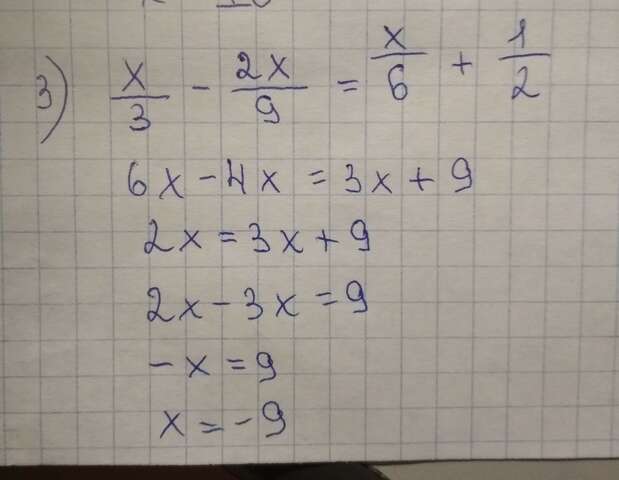 3) x/3 - 2x/9 = x/6 + 1/2
6x - 4x = 3x + 9
2x = 3x + 9
2x - 3x = 9
-x = 9
x = -9